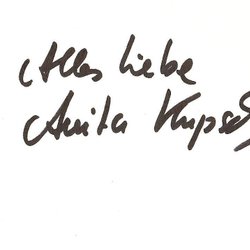 Alles Liebe
Anita Kupsch